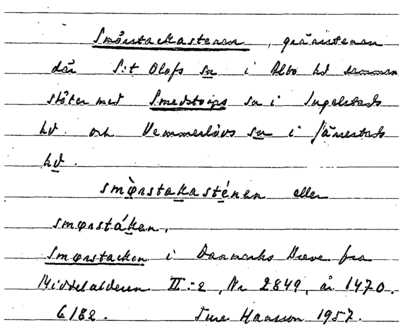 Smörstackastenen, gränsstenen
där S:t Olofs sn i Albo hd samman
stöter med Smedstorps sn i Ingelstads
hd. och Vemmerlövs sn i Järrestads
hd.
smørstakasténen eller
smørstáken.
Smørstacken i Danmarks Breve fra
Middelalderen III:2, Nr 2849, år 1470.
6182. Ture Hansson 1957.